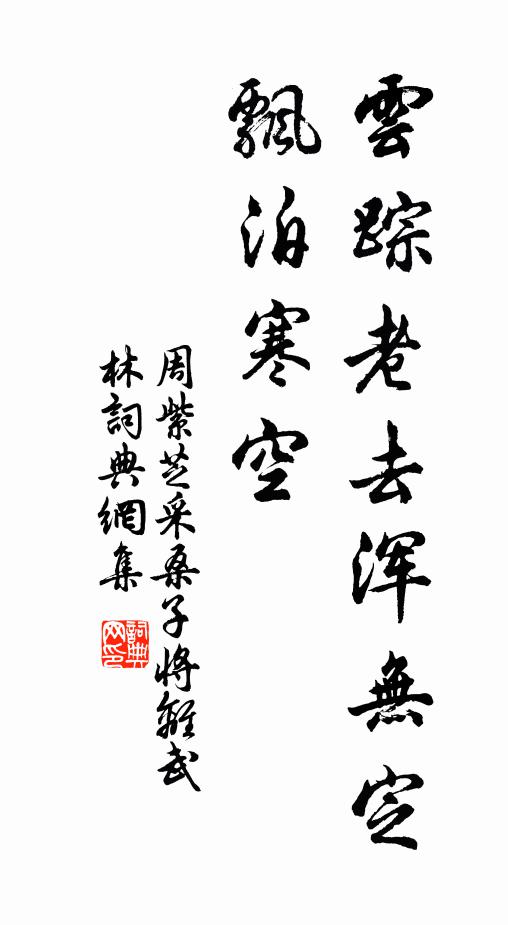 雲踪老去浑無定
飄泊寒空
周紫芝采桑子將離武
林詞典網集
詞典
网印